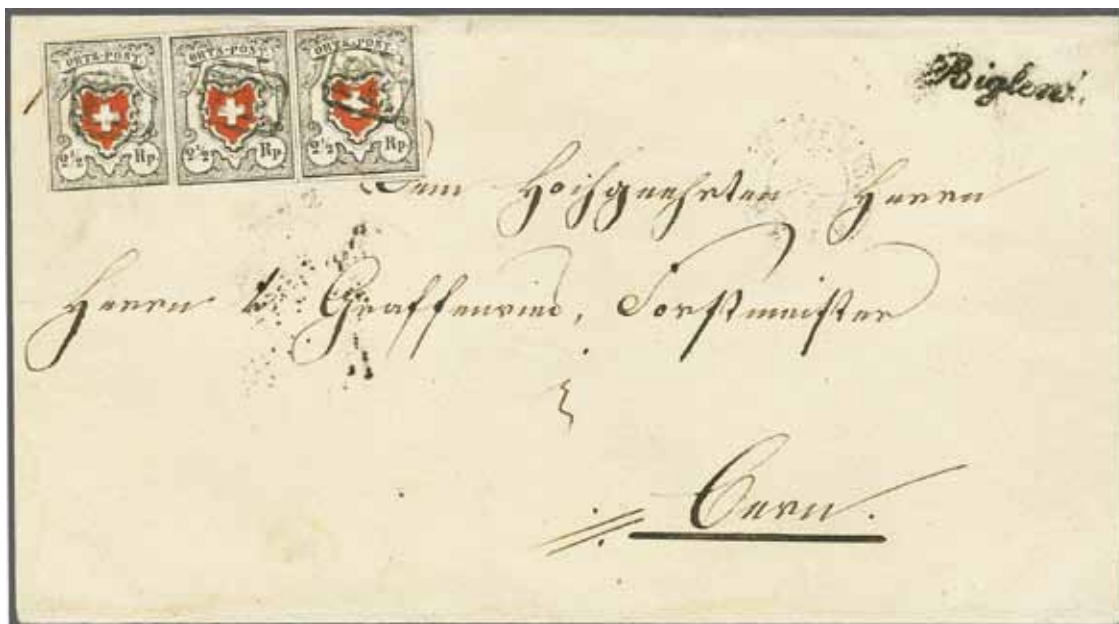 ORTS-POST ORTS-POST ORTS-POST
2½ Rp. 2½ Rp. 2½ Rp.
Biglen.
Dem Hochgeehrten Herrn
Herrn v. Graffenried, Forstmeister
Bern.